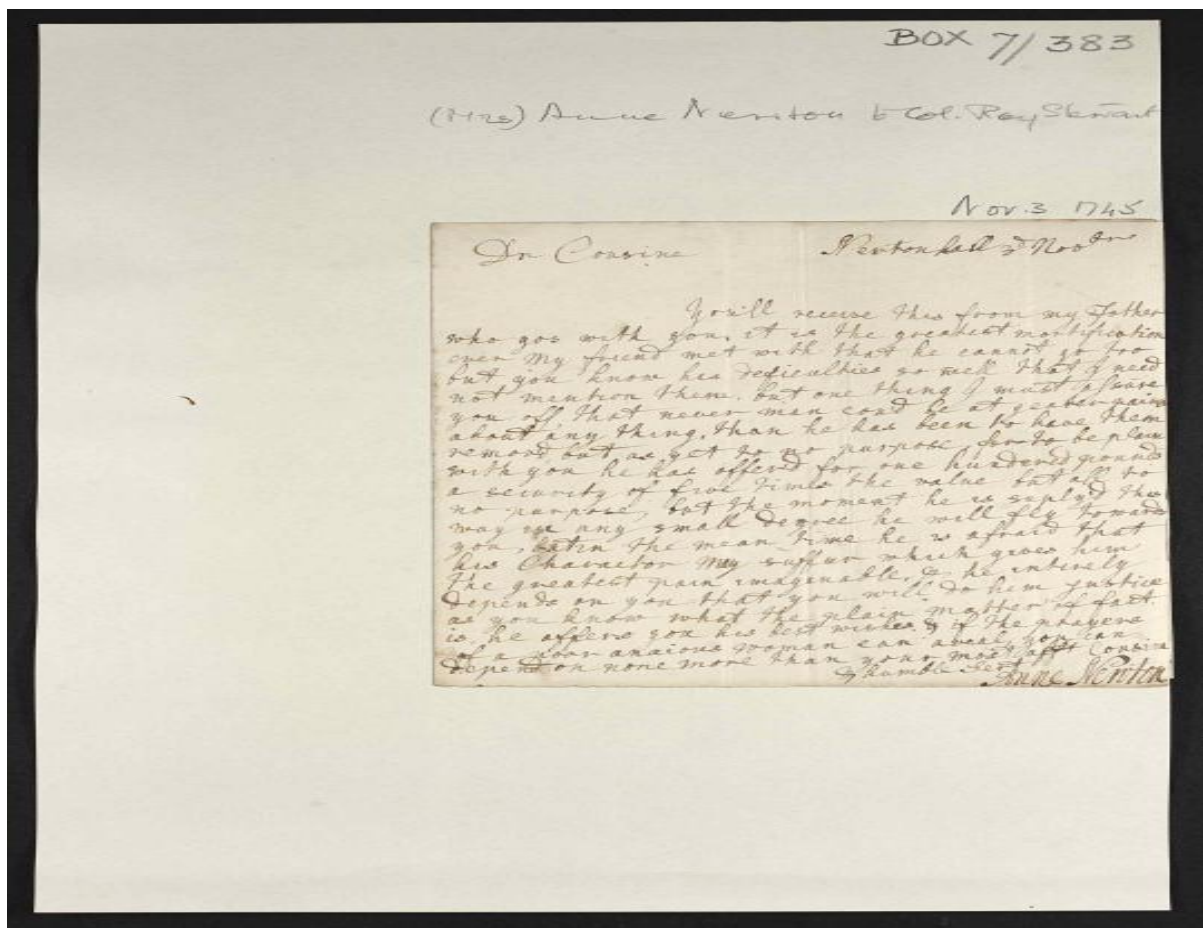 BOX 7/383
(Mrs) Anne Newton to Col. Roy Stewart
Nov. 3 1745
Dr Cousine Newtonhall 3d Novbre
You'll receive this from my Father
who gos with you, it is the greatest mortification
ever my friend met with that he cannot go too
but you know his deficulties so well that I need
not mention them. but one thing I must assure
you off, that never man coud be at greater pains
about any thing, than he has been to have them
removd but as yet to no purpose, for to be plain
with you he has offered for one hundred pounds
a security of five times the value but all to
no purpose, but the moment he is suplyd this
way in any small degree he will fly towards
you, but in the mean time he is afraid that
his Charactor may suffur which gives him
the greatest pain imaginable, & he intirely
depends on you that you will do him justice
as you know what the plain matter of fact
is, he offers you his best wishes & if the prayers
of a poor anxious woman can aveal, you can
depend on none more than your most afft Cousine
& humble Sert
Anne Newton